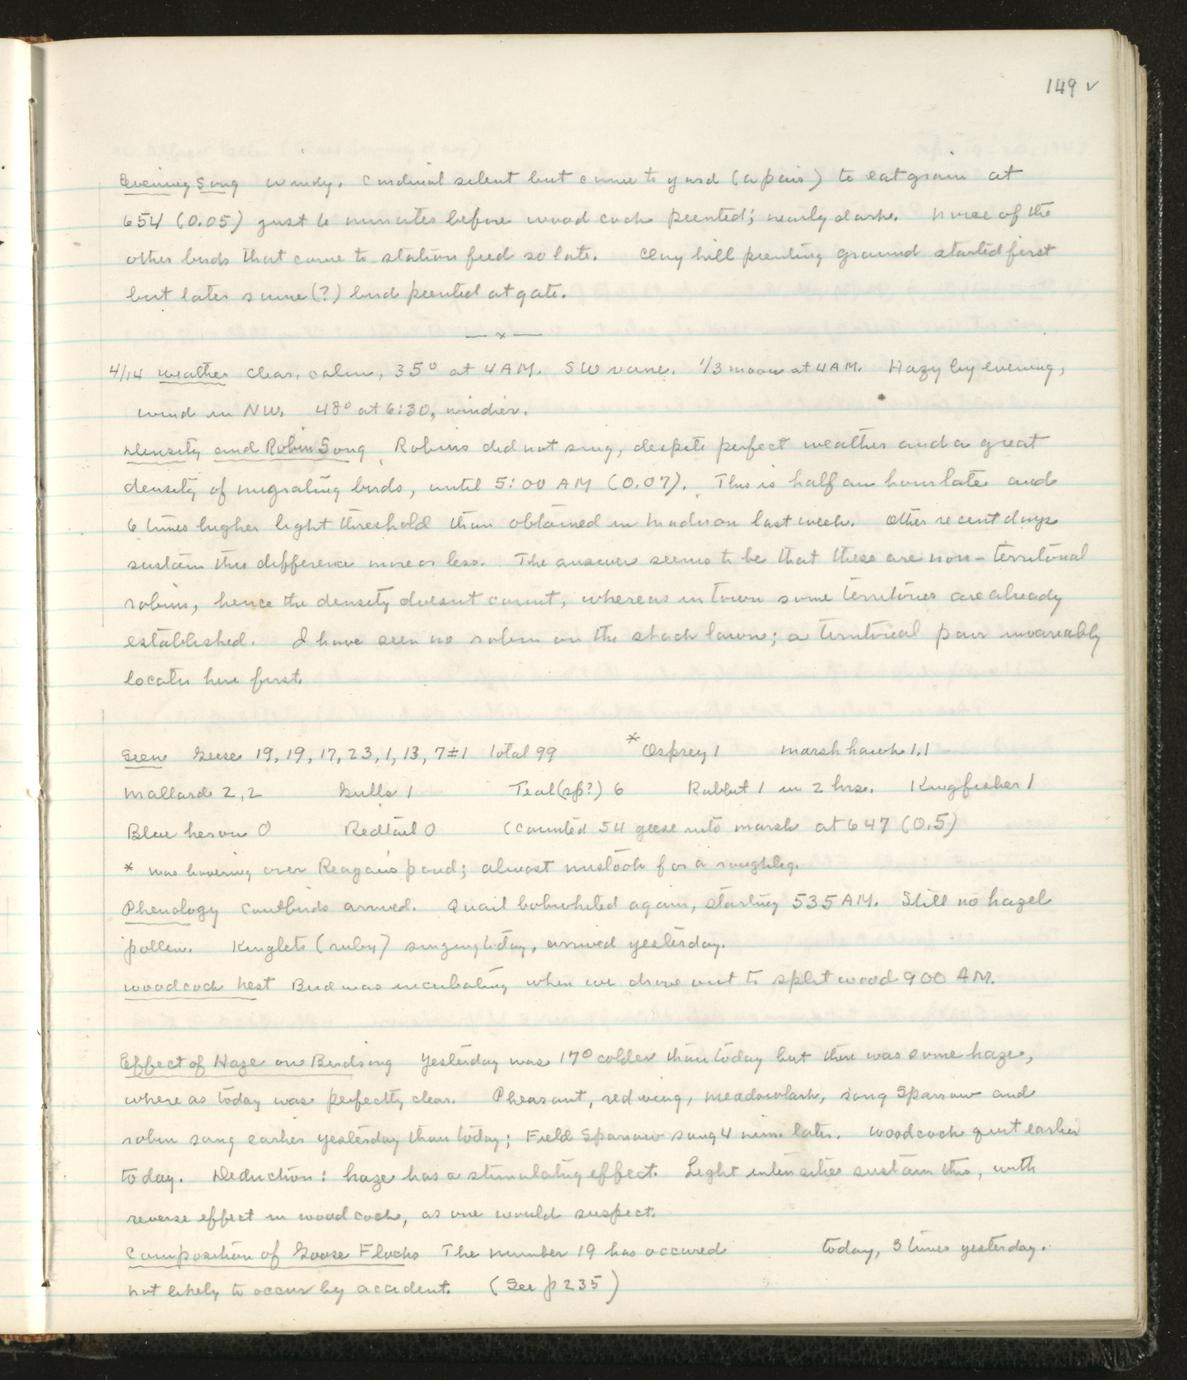 149 ✓
Evening Song windy. Cardinal silent but came to yard (a pair) to eat grain at
654 (0.05) just 6 minutes before woodcock peented; nearly dark. None of the
other birds that come to station feed so late. Clay hill peenting ground started first
but later same (?) bird peented at gate.
— x —
4/14 weather clear, calm, 35° at 4 AM. SW vane. 1/3 moon at 4 AM. Hazy by evening,
wind in NW. 48° at 6:30, windier.
Density and Robin Song Robins did not sing, despite perfect weather and a great
density of migrating birds, until 5:00 AM (0.07). This is half an hour late and
6 times higher light threshold than obtained in Madison last week. Other recent days
sustain this difference more or less. The answer seems to be that these are non-territorial
robins, hence the density doesnt count, whereas in town some territories are already
established. I have seen no robin on the shack lawn; a territorial pair invareably
locates here first.
Seen Geese 19, 19, 17, 23, 1, 13, 7±1 Total 99 * Osprey 1 marsh hawk 1,1
Mallard 2,2 Gulls 1 Teal (sp?) 6 Rabbit 1 in 2 hrs. Kingfisher 1
Blue heron 0 Redtail 0 (Counted 54 geese into marsh at 647 (0.5)
* was hovering over Reagan's pond; almost mistook for a roughleg.
Phenology Cowbirds arrived. Quail bobwhited again, starting 535 AM. Still no hazel
pollen. Kinglets (ruby) singing today, arrived yesterday.
woodcock nest Bird was incubating when we drove out to split wood 900 AM.
Effect of Haze on Birdsong Yesterday was 17° colder than today but there was some haze,
where as today was perfectly clear. Pheasant, redwing, meadowlark, song Sparrow and
robin sang earlier yesterday than today; Field Sparrow sang 4 min. later. Woodcock quit earlier
today. Deduction: haze has a stimulating effect. Light intensities sustain this, with
reverse effect in woodcock, as one would suspect.
Composition of Goose Flocks The number 19 has occured today, 3 times yesterday.
not likely to occur by accident. (See p 235)